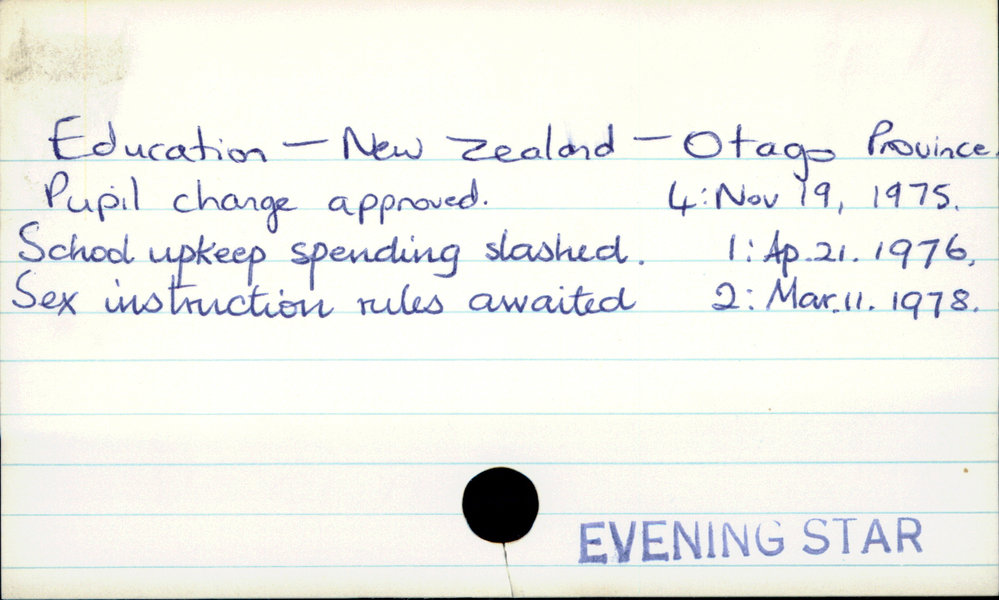 Education — New Zealand — Otago Province.
Pupil change approved. 4: Nov 19, 1975.
School upkeep spending slashed. 1: Ap. 21. 1976.
Sex instruction rules awaited 2: Mar. 11. 1978.
EVENING STAR